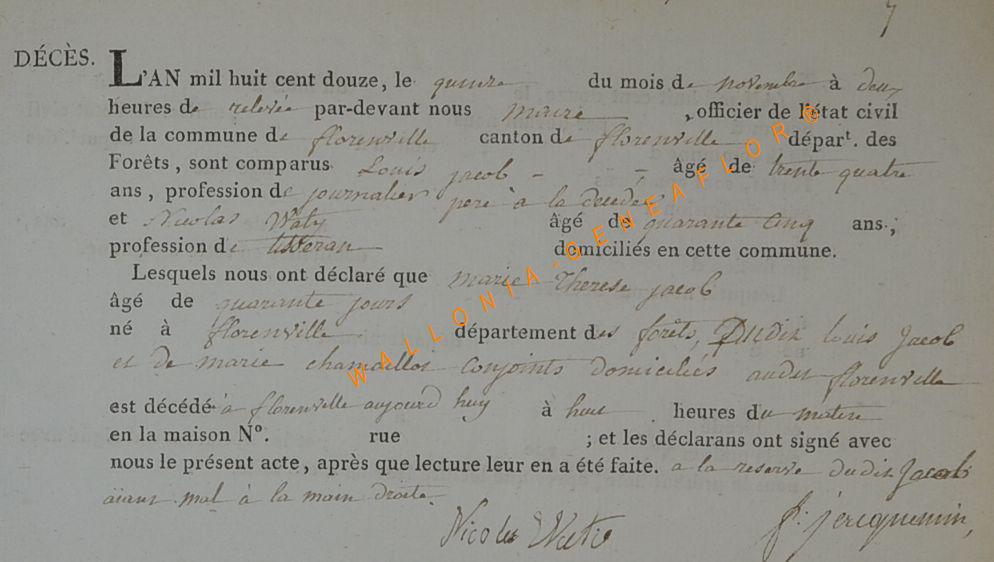 7
DÉCÈS. L'AN mil huit cent douze, le quinze du mois de novembre à deux
heures de relevée par-devant nous maire, officier de l'état civil
de la commune de florenville canton de florenville départ. des
Forêts, sont comparus Louis jacob - - âgé de trente quatre
ans, profession de journalier pere à la decedée
et Nicolas Waty âgé de quarante cinq ans,;
profession de tisseran domiciliés en cette commune.
Lesquels nous ont déclaré que marie Therese jacob
âgé de quarante jours
né à florenville département des forêts, Dudit louis Jacob
et de marie conjoints domiciliés audit florenville
est décédé à florenville aujourd huy à huit heures du matin
en la maison N°. rue ; et les déclarans ont signé avec
nous le présent acte, après que lecture leur en a été faite. a la reserve dudit Jacob
aiant mal à la main droite.
Nicolas
WALLONIA-GENEAFLOR©